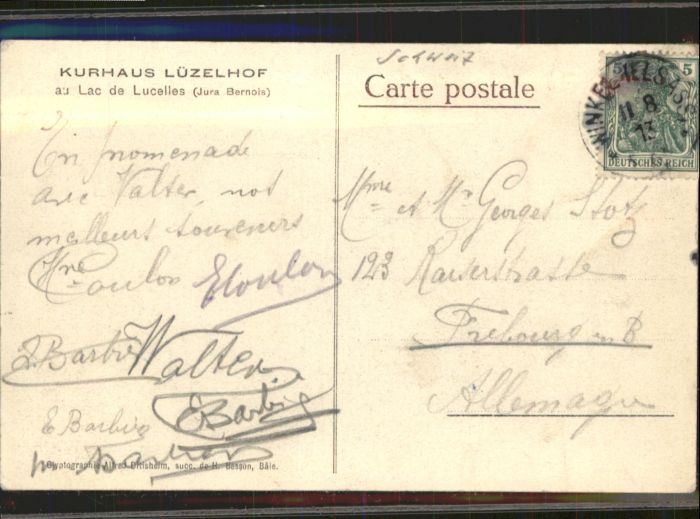 KURHAUS LÜZELHOF
au Lac de Lucelles (Jura Bernois)
En promenade
avec Valter, nos
meilleurs souvenirs
Mme Coulon ECoulon
EBarbier Walter
EBarbier
E Barbier
Glyptographie Alfred Ditisheim, succ. de H. Besson, Bâle.
Schweiz
Carte postale
5
WINKEL (ELSASS)
11 8
13
DEUTSCHES REICH
Mme et Mr Georges Stotz
123 Kaiserstrasse
Freibourg en B
Allemagne